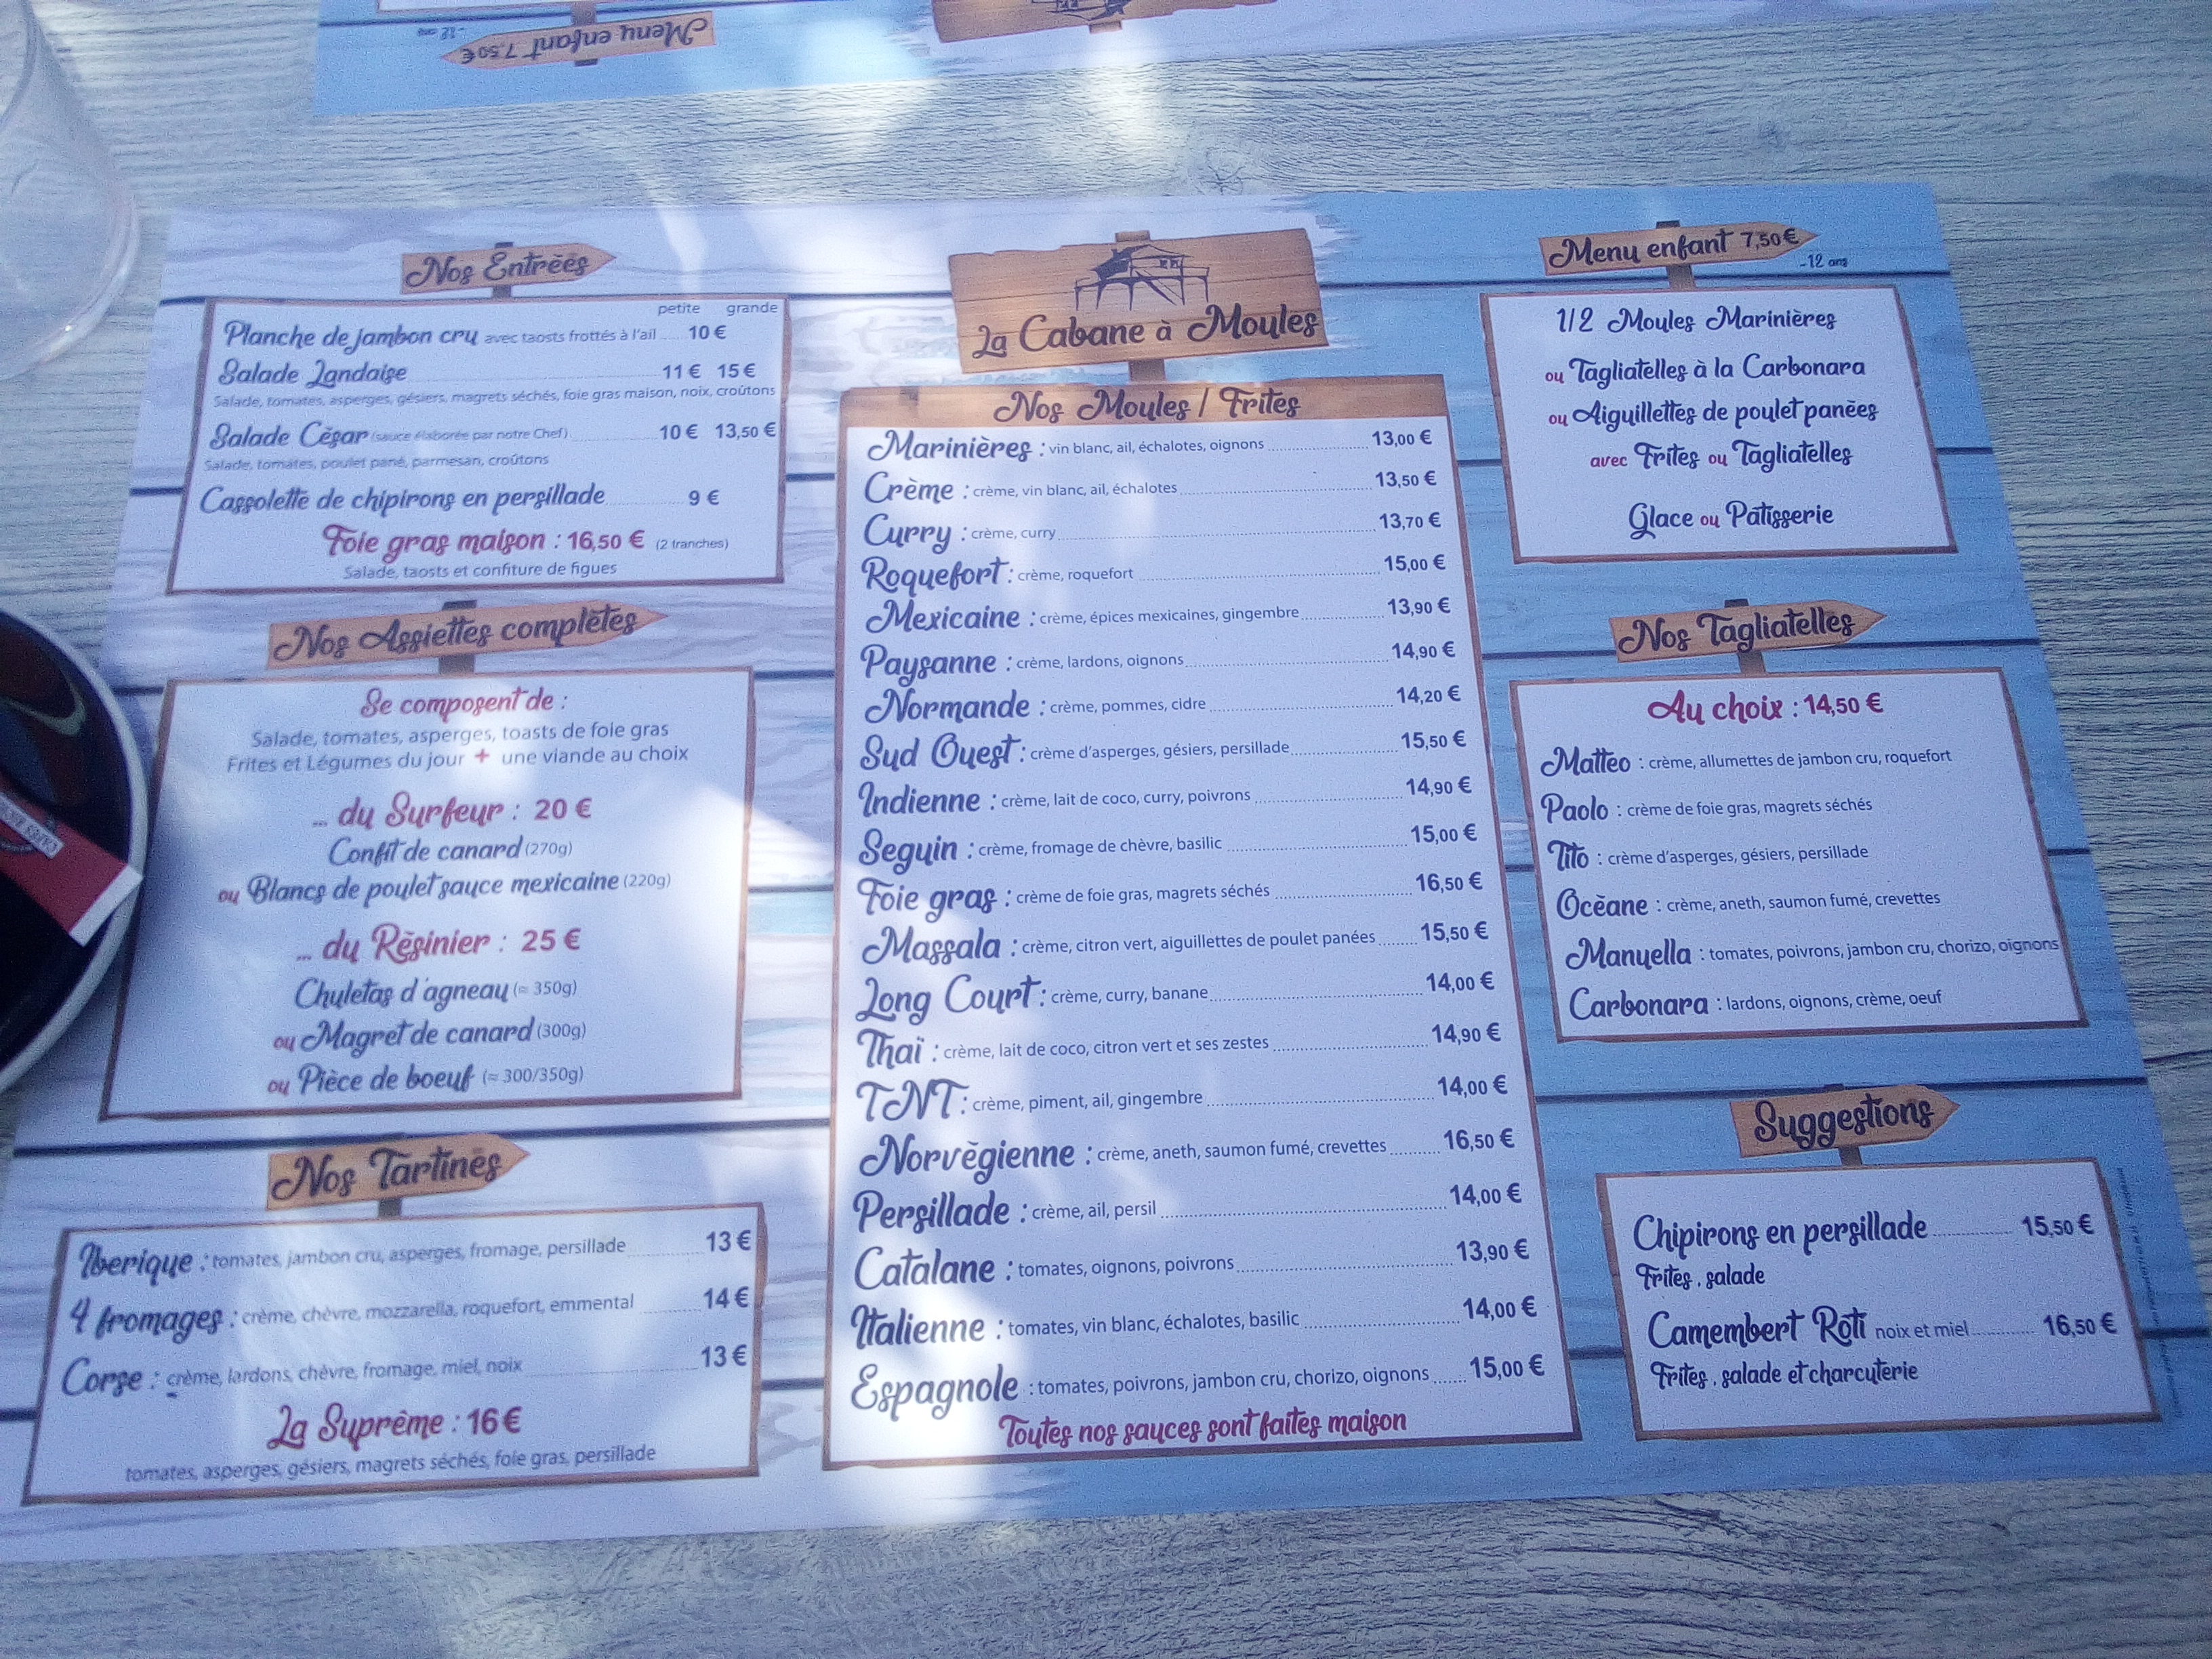 Menu enfant 7,50€
-12 ans
Nos Entrées
petite grande
Planche de jambon cru avec taosts frottés à l'ail 10 €
Salade Landaise 11 € 15 €
Salade, tomates, asperges, gésiers, magrets séchés, foie gras maison, noix, croûtons
Salade César (sauce élaborée par notre Chef) 10 € 13,50 €
Salade, tomates, poulet pané, parmesan, croûtons
Cassolette de chipirons en persillade 9 €
Foie gras maison : 16,50 € (2 tranches)
Salade, taosts et confiture de figues
Nos Assiettes complètes
Se composent de :
Salade, tomates, asperges, toasts de foie gras
Frites et Légumes du jour + une viande au choix
... du Surfeur : 20 €
Confit de canard (270g)
ou Blancs de poulet sauce mexicaine (220g)
... du Résinier : 25 €
Chuletas d'agneau (≈ 350g)
ou Magret de canard (300g)
ou Pièce de boeuf (≈ 300/350g)
Nos Tartines
Iberique : tomates, jambon cru, asperges, fromage, persillade 13 €
4 fromages : crème, chèvre, mozzarella, roquefort, emmental 14 €
Corse : crème, lardons, chèvre, fromage, miel, noix 13 €
La Suprême : 16 €
tomates, asperges, gésiers, magrets séchés, foie gras, persillade
La Cabane à Moules
Nos Moules / Frites
Marinières : vin blanc, ail, échalotes, oignons 13,00 €
Crème : crème, vin blanc, ail, échalotes 13,50 €
Curry : crème, curry 13,70 €
Roquefort : crème, roquefort 15,00 €
Mexicaine : crème, épices mexicaines, gingembre 13,90 €
Paysanne : crème, lardons, oignons 14,90 €
Normande : crème, pommes, cidre 14,20 €
Sud Ouest : crème d'asperges, gésiers, persillade 15,50 €
Indienne : crème, lait de coco, curry, poivrons 14,90 €
Seguin : crème, fromage de chèvre, basilic 15,00 €
Foie gras : crème de foie gras, magrets séchés 16,50 €
Massala : crème, citron vert, aiguillettes de poulet panées 15,50 €
Long Court : crème, curry, banane 14,00 €
Thaï : crème, lait de coco, citron vert et ses zestes 14,90 €
TNT : crème, piment, ail, gingembre 14,00 €
Norvégienne : crème, aneth, saumon fumé, crevettes 16,50 €
Persillade : crème, ail, persil 14,00 €
Catalane : tomates, oignons, poivrons 13,90 €
Italienne : tomates, vin blanc, échalotes, basilic 14,00 €
Espagnole : tomates, poivrons, jambon cru, chorizo, oignons 15,00 €
Toutes nos sauces sont faites maison
Menu enfant 7,50€
-12 ans
1/2 Moules Marinières
ou Tagliatelles à la Carbonara
ou Aiguillettes de poulet panées
avec Frites ou Tagliatelles
Glace ou Patisserie
Nos Tagliatelles
Au choix : 14,50 €
Matteo : crème, allumettes de jambon cru, roquefort
Paolo : crème de foie gras, magrets séchés
Tito : crème d'asperges, gésiers, persillade
Océane : crème, aneth, saumon fumé, crevettes
Manuella : tomates, poivrons, jambon cru, chorizo, oignons
Carbonara : lardons, oignons, crème, oeuf
Suggestions
Chipirons en persillade 15,50 €
Frites, salade
Camembert Roti noix et miel 16,50 €
Frites, salade et charcuterie